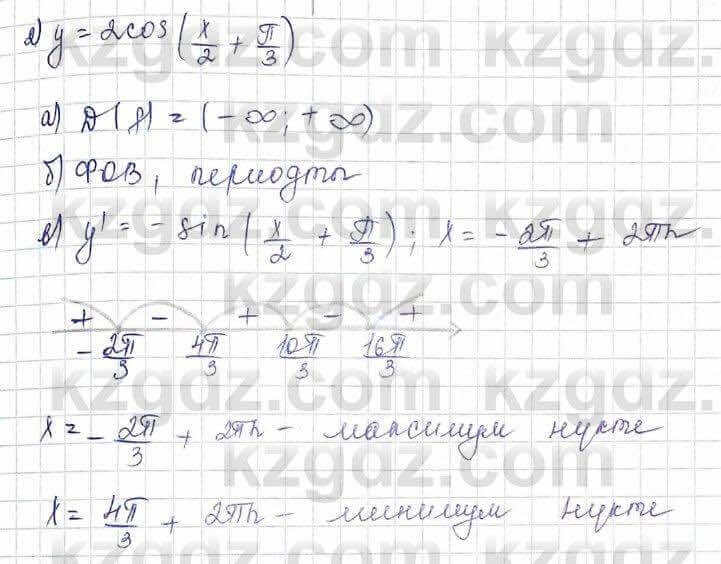 д) y = 2cos(x/2 + π/3)
а) D(f) = (-∞; +∞)
б) ФОВ, периодты
в) y' = - sin(x/2 + π/3); x = - 2π/3 + 2πn
+ - + - +
- 2π/3 4π/3 10π/3 16π/3
x = - 2π/3 + 2πn - максимум нүкте
x = 4π/3 + 2πn - минимум нүкте
kzgdz.com